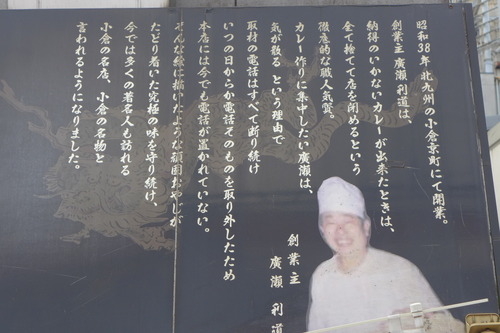 昭和38年北九州の小倉京町にて開業。
創業主 廣瀬 利道は
納得のいかないカレーが出来たときは、
全て捨てて店を閉めるという
徹底的な職人気質。
カレー作りに集中したい廣瀬は、
気が散る という理由で
取材の電話はすべて断り続け
いつの日からか電話そのものを取り外したため
本店には今でも電話が置かれていない。
そんな絵に描いたような頑固おやじが
たどり着いた究極の味を守り続け、
今では多くの著名人も訪れる
小倉の名店、小倉の名物と
言われるようになりました。
創業主
廣瀬 利道